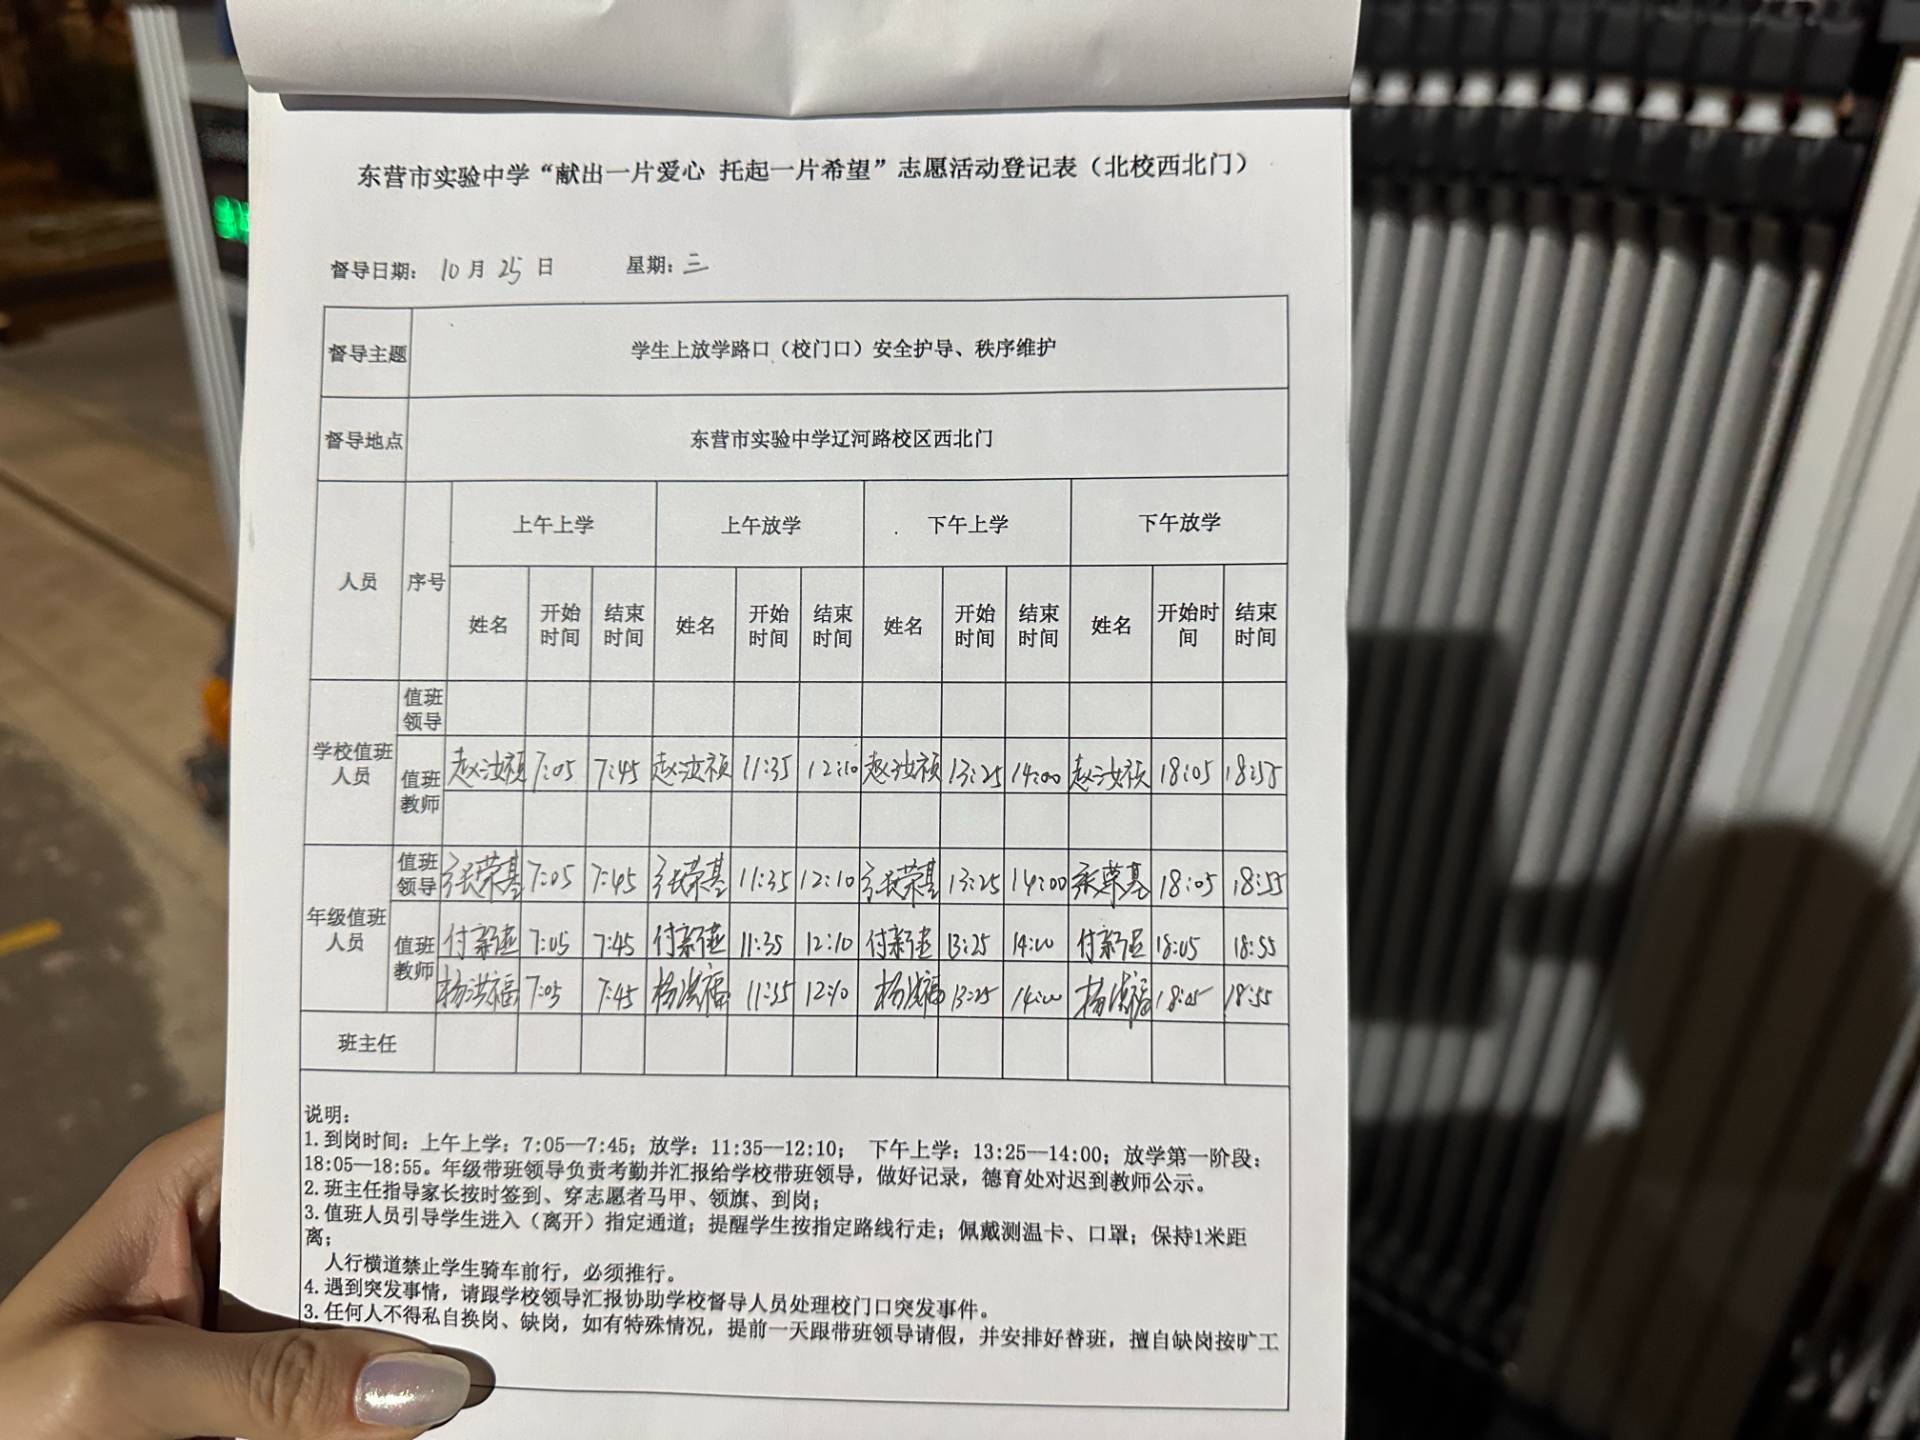 东营市实验中学“献出一片爱心 托起一片希望”志愿活动登记表（北校西北门）
督导日期： 10 月 25 日 星期：三
督导主题 学生上放学路口（校门口）安全护导、秩序维护
督导地点 东营市实验中学辽河路校区西北门
人员 序号 上午上学 上午放学 下午上学 下午放学
姓名 开始时间 结束时间 姓名 开始时间 结束时间 姓名 开始时间 结束时间 姓名 开始时间 结束时间
学校值班人员 值班领导
值班教师 赵汝祯 7:05 7:45 赵汝祯 11:35 12:10 赵汝祯 13:25 14:00 赵汝祯 18:05 18:55
年级值班人员 值班领导 张荣基 7:05 7:45 张荣基 11:35 12:10 张荣基 13:25 14:00 张荣基 18:05 18:55
值班教师 付新 7:05 7:45 付新 11:35 12:10 付新 13:25 14:00 付新 18:05 18:55
杨洪福 7:05 7:45 杨洪福 11:35 12:10 杨洪福 13:25 14:00 杨洪福 18:05 18:55
班主任
说明：
1.到岗时间：上午上学：7:05—7:45；放学：11:35—12:10； 下午上学：13:25—14:00；放学第一阶段：
18:05—18:55。年级带班领导负责考勤并汇报给学校带班领导，做好记录，德育处对迟到教师公示。
2.班主任指导家长按时签到、穿志愿者马甲、领旗、到岗；
3.值班人员引导学生进入（离开）指定通道；提醒学生按指定路线行走；佩戴测温卡、口罩；保持1米距
离；
人行横道禁止学生骑车前行，必须推行。
4.遇到突发事情，请跟学校领导汇报协助学校督导人员处理校门口突发事件。
3.任何人不得私自换岗、缺岗，如有特殊情况，提前一天跟带班领导请假，并安排好替班，擅自缺岗按旷工